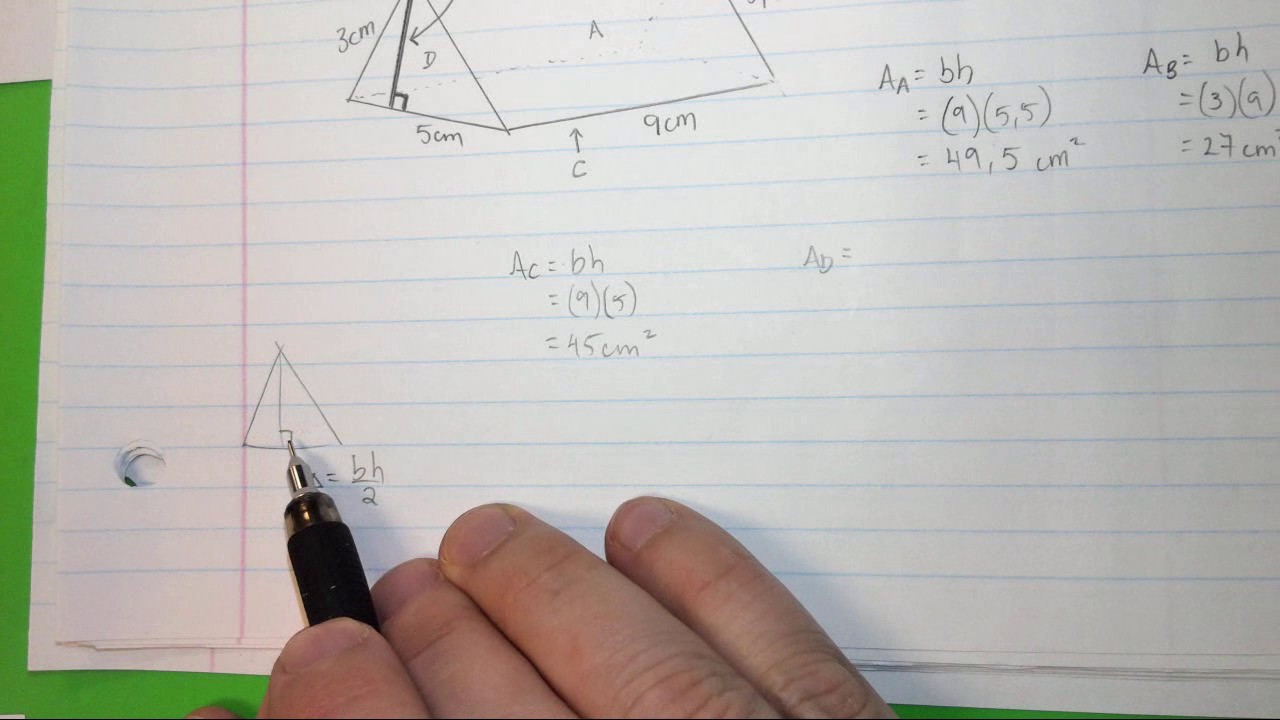 3cm
D
A
5cm
9cm
C
A_A = bh
= (9)(5,5)
= 49,5 cm²
A_B = bh
= (3)(9)
= 27 cm²
A_C = bh
= (9)(5)
= 45cm²
A_D =
= bh/2